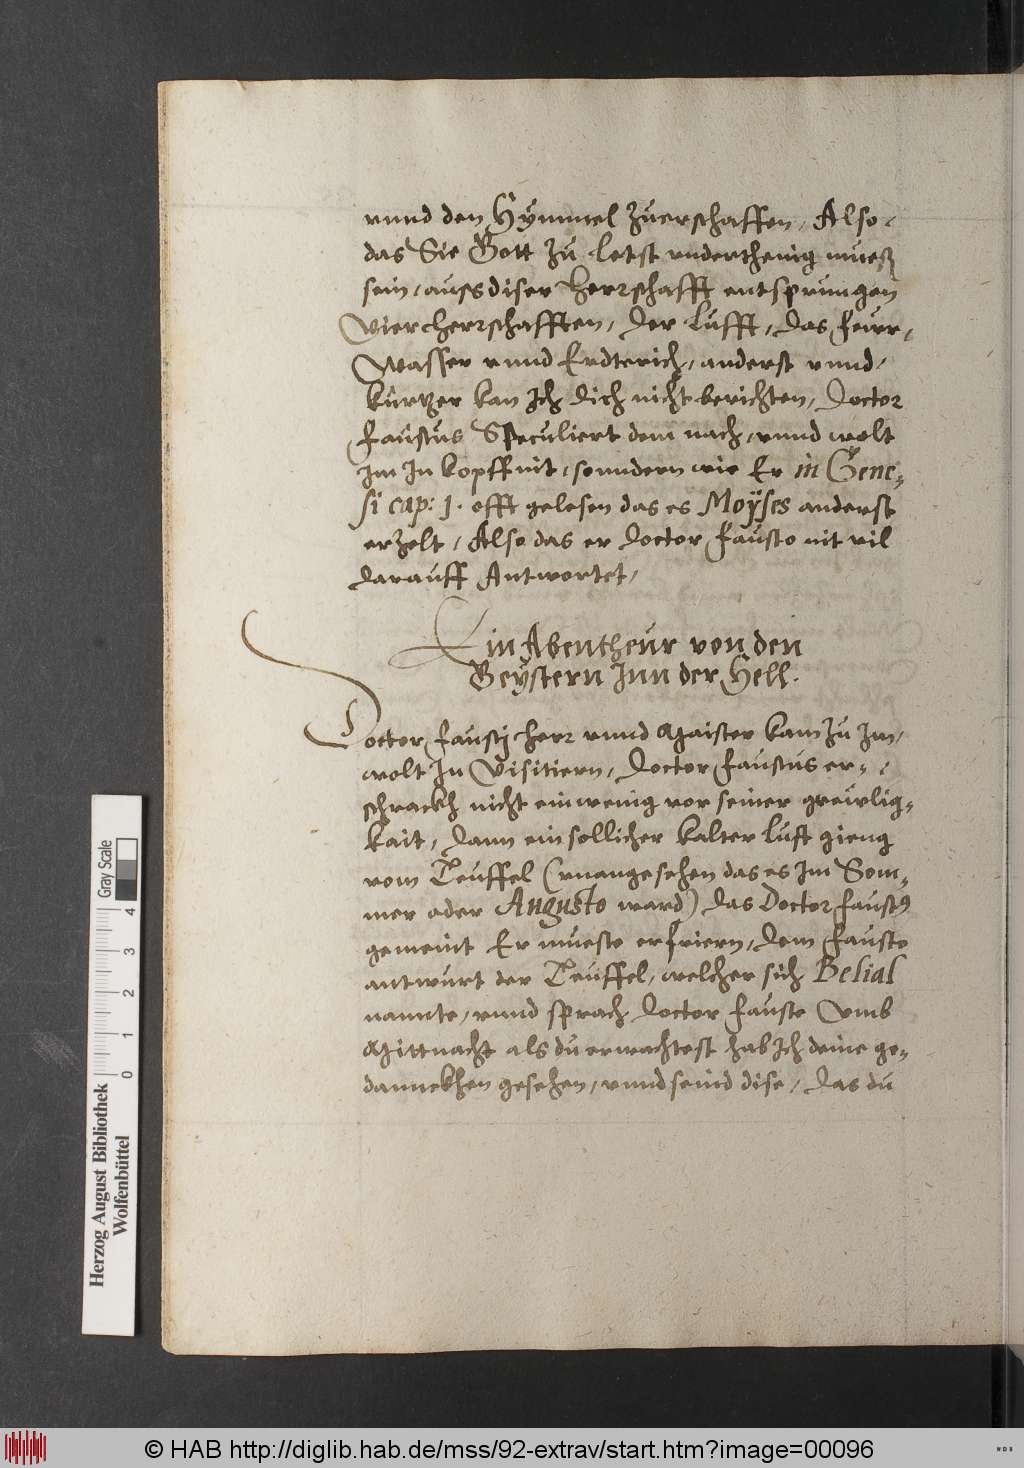 vnnd den Hÿmmel zuerschaffen, Also,
das Sie Gott zu letst vnderthenig mueß
sein, auss diser Herrschafft entsprungen
Vier Herrschafften, der Lufft, das Feur,
Wasser vnnd Erdterich, anderst vnnd,
kürtzer kan Ich dich nicht berichten, Doctor
Faustus Speculiert dem nach, vnnd wolt
im In kopff nit, sonndern wie Er in Gene-
si cap: 1. offt gelesen das es Moÿses anderst
erzelt, Also das er Doctor Fausto nit vil
darauff Antwortet,
Ein Abentheur von den
Geÿstern Inn der Hell.
Doctor Faustj Herr vnnd Maister kam zu Im,
wolt In Visitiern, Doctor Faustus er-
schrackh nicht ein wenig vor seiner grewlig-
kait, dann ein sollicher kalter Luft gieng
vom Teuffel (vnangesehen das es Im Som-
mer oder Augusto ward) das Doctor Faustus
gemeint Er mueste erfriern, dem Fausto
antwurt der Teuffel, welcher sich Belial
nannte, vnnd sprach Doctor Fauste Vmb
Mittnacht als du erwachtest hab Ich deine ge-
dannckhen gesehen, vnnd seind dise, das du
Gray Scale
0 1 2 3 4
Herzog August Bibliothek
Wolfenbüttel
© HAB http://diglib.hab.de/mss/92-extrav/start.htm?image=00096